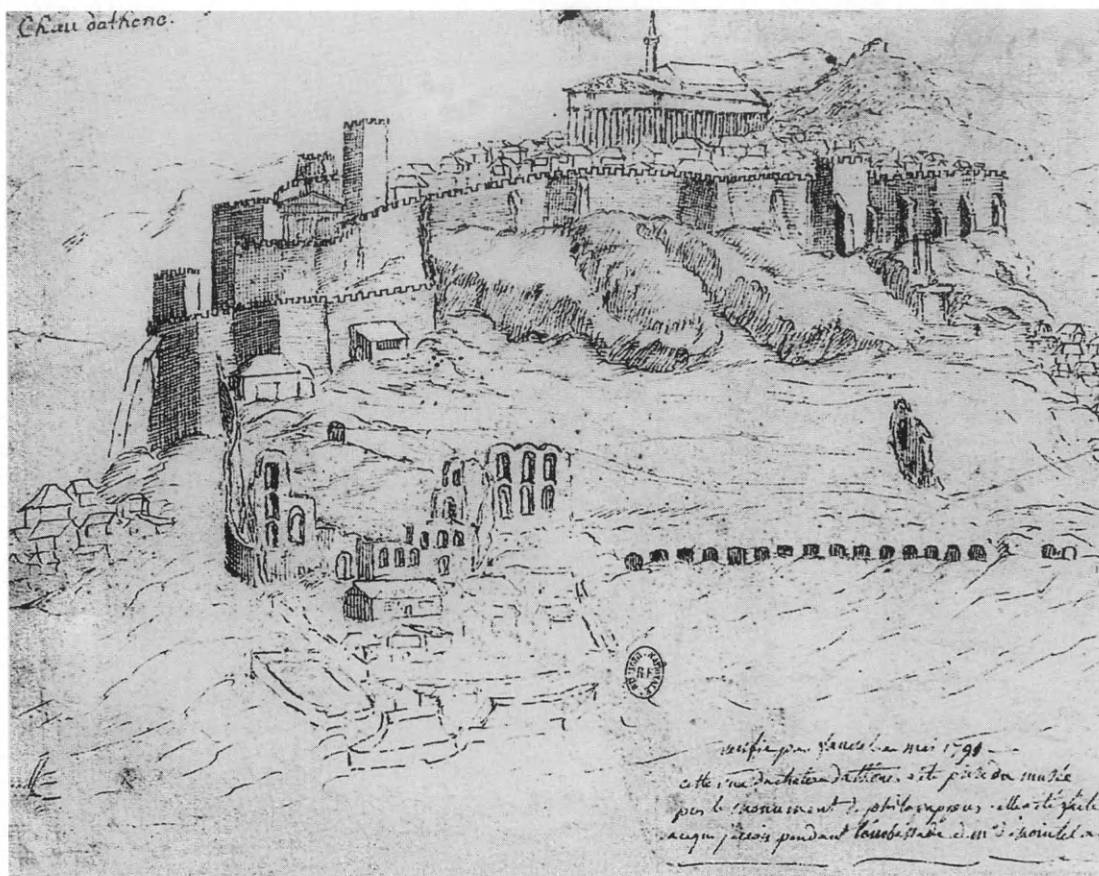 Chau dathene.
verifie par fauvel en mai 1791
cette vue du chateau dathenes a ete prise du musée
par le monument de philopapus elle a été faite
pendant l'ambassade de mr de nointel